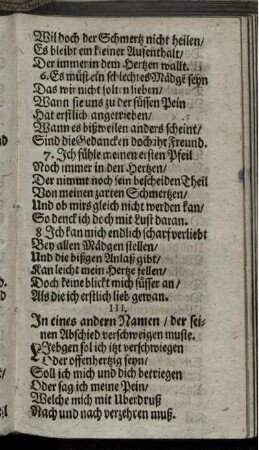 Wil doch der Schmertz nicht heilen/
Es bleibt ein kleiner Aufenthalt/
Der immer in dem Hertzen wallt.
6. Es müst ein schlechtes Mädge seyn
Das wir nicht solten lieben/
Wann sie uns zu der süssen Pein
Hat erstlich angetrieben/
Wann es bißweilen anders scheint/
Sind die Gedancken doch ihr Freund.
7. Ich fühle meinen ersten Pfeil
Noch immer in den Hertzen/
Der nimmt noch sein bescheiden Theil
Von meinen zarten Schmertzen/
Und ob mirs gleich nicht werden kan/
So denck ich doch mit Lust daran.
8 Ich kan mich endlich scharf verliebt
Bey allen Mädgen stellen/
Und die bißgen Anlaß gibt/
Kan leicht mein Hertze fellen/
Doch keine blickt mich süsser an/
Als die ich erstlich lieb gewan.
III.
In eines andern Namen/ der sei-
nen Abschied verschweigen muste.
LIebgen sol ich itzt verschwiegen
Oder offenhertzig seyn/
Soll ich mich und dich betriegen
Oder sag ich meine Pein/
Welche mich mit Uberdruß
Nach und nach verzehren muß.